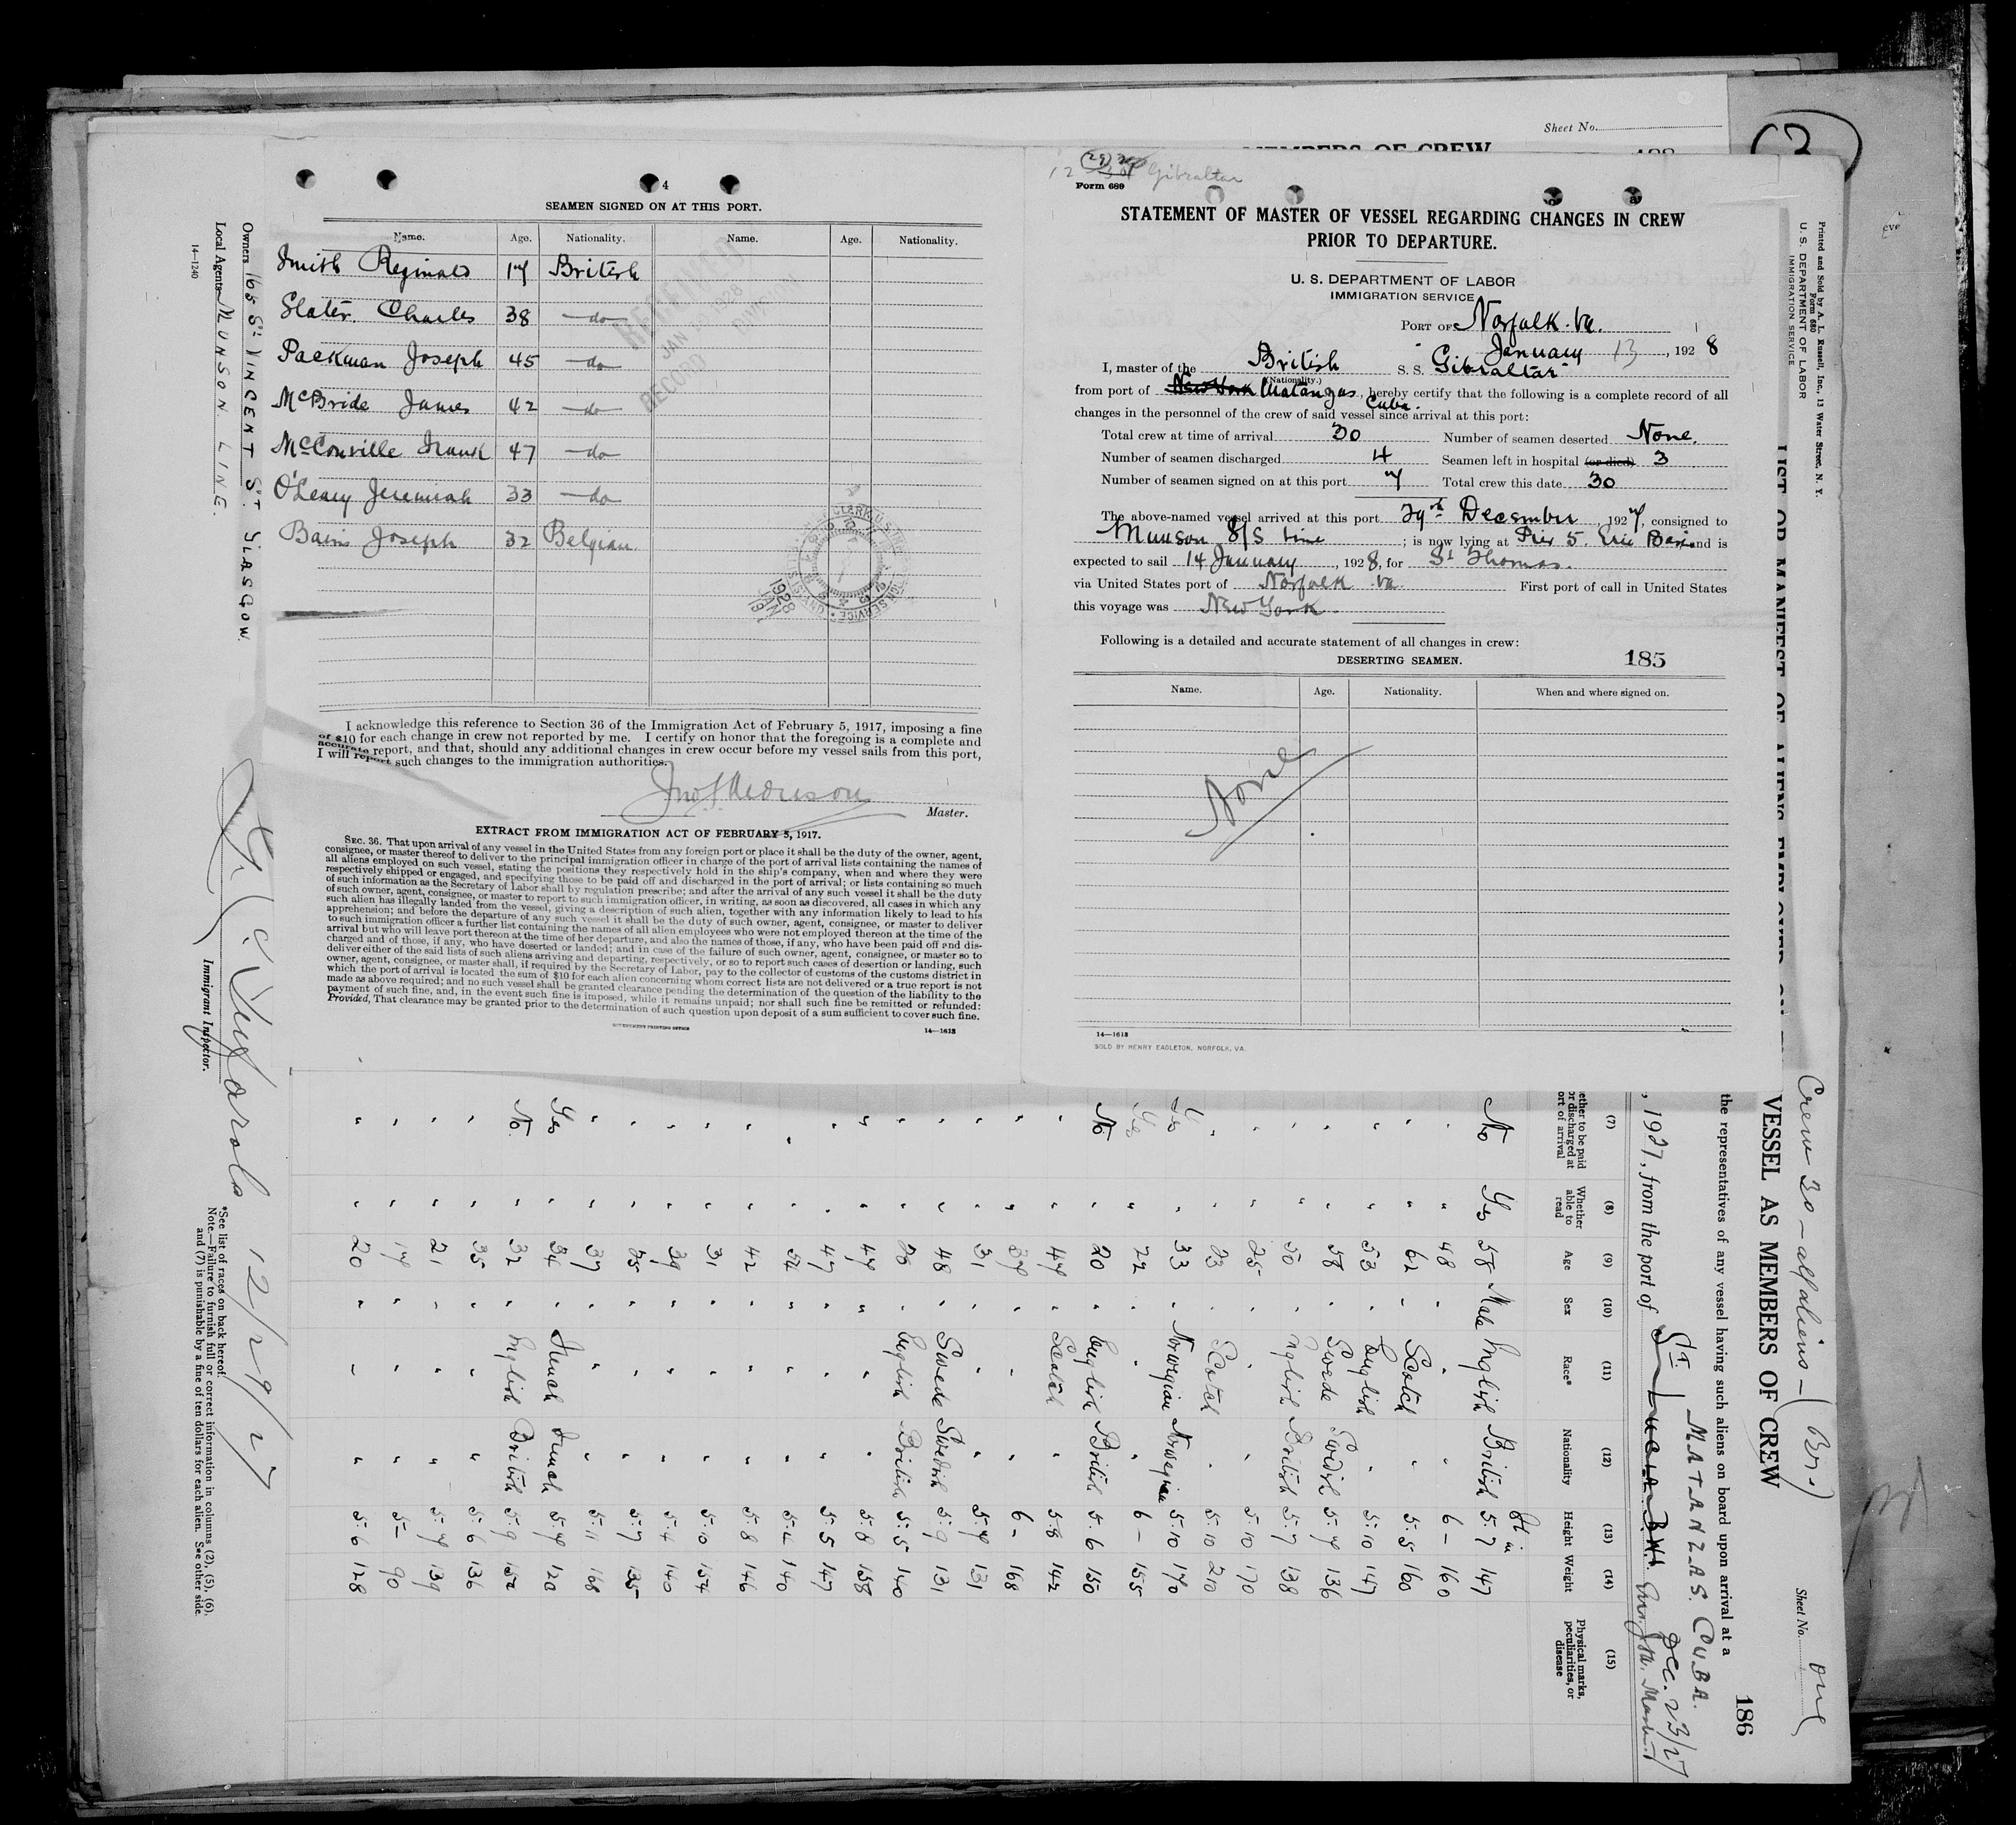 Sheet No.
MEMBERS OF CREW
4
SEAMEN SIGNED ON AT THIS PORT.
Name. Age. Nationality. Name. Age. Nationality.
Smith Reginald 17 British
Slater. Charles 38 —do
Packman Joseph 45 —do
McBride James 42 —do
McConville Frank 47 —do
O'Leary Jeremiah 33 —do
Bains Joseph 32 Belgian.
RECEIVED
JAN 1928
RECORD DIVISION
I acknowledge this reference to Section 36 of the Immigration Act of February 5, 1917, imposing a fine
of $10 for each change in crew not reported by me. I certify on honor that the foregoing is a complete and
accurate report, and that, should any additional changes in crew occur before my vessel sails from this port,
I will report such changes to the immigration authorities.
Master.
EXTRACT FROM IMMIGRATION ACT OF FEBRUARY 5, 1917.
SEC. 36. That upon arrival of any vessel in the United States from any foreign port or place it shall be the duty of the owner, agent,
consignee, or master thereof to deliver to the principal immigration officer in charge of the port of arrival lists containing the names of
all aliens employed on such vessel, stating the positions they respectively hold in the ship's company, when and where they were
respectively shipped or engaged, and specifying those to be paid off and discharged in the port of arrival; or lists containing so much
of such information as the Secretary of Labor shall by regulation prescribe; and after the arrival of any such vessel it shall be the duty
of such owner, agent, consignee, or master to report to such immigration officer, in writing, as soon as discovered, all cases in which any
such alien has illegally landed from the vessel, giving a description of such alien, together with any information likely to lead to his
apprehension; and before the departure of any such vessel it shall be the duty of such owner, agent, consignee, or master to deliver
to such immigration officer a further list containing the names of all alien employees who were not employed thereon at the time of the
arrival but who will leave port thereon at the time of her departure, and also the names of those, if any, who have been paid off and dis-
charged and of those, if any, who have deserted or landed; and in case of the failure of such owner, agent, consignee, or master so to
deliver either of the said lists of such aliens arriving and departing, respectively, or so to report such cases of desertion or landing, such
owner, agent, consignee, or master shall, if required by the Secretary of Labor, pay to the collector of customs of the customs district in
which the port of arrival is located the sum of $10 for each alien concerning whom correct lists are not delivered or a true report is not
made as above required; and no such vessel shall be granted clearance pending the determination of the question of the liability to the
payment of such fine, and, in the event such fine is imposed, while it remains unpaid; nor shall such fine be remitted or refunded:
Provided, That clearance may be granted prior to the determination of such question upon deposit of a sum sufficient to cover such fine.
GOVERNMENT PRINTING OFFICE 14—1613
Gibraltar
Form 689
STATEMENT OF MASTER OF VESSEL REGARDING CHANGES IN CREW
PRIOR TO DEPARTURE.
U. S. DEPARTMENT OF LABOR
IMMIGRATION SERVICE
PORT OF Norfolk. Va.
January 13, 1928
I, master of the British S. S. Gibraltar
(Nationality.)
from port of New York Matanzas Cuba., hereby certify that the following is a complete record of all
changes in the personnel of the crew of said vessel since arrival at this port:
Total crew at time of arrival 30 Number of seamen deserted None.
Number of seamen discharged 4 Seamen left in hospital (or died) 3
Number of seamen signed on at this port 7 Total crew this date 30
The above-named vessel arrived at this port 29th December, 1927, consigned to
Munson S/S Line; is now lying at Pier 5. Erie Basin and is
expected to sail 14 January, 1928, for St Thomas.
via United States port of Norfolk Va. First port of call in United States
this voyage was New York
Following is a detailed and accurate statement of all changes in crew:
DESERTING SEAMEN. 185
Name. Age. Nationality. When and where signed on.
None
14—1613
SOLD BY HENRY EAGLETON, NORFOLK, VA.
Printed and Sold by A. L. Russell, Inc., 13 Water Street, N. Y.
Form 680
U. S. DEPARTMENT OF LABOR
IMMIGRATION SERVICE
Crew 30 — all aliens — (Br.)
Sheet No. One
186
VESSEL AS MEMBERS OF CREW
the representatives of any vessel having such aliens on board upon arrival at a
St MATANZAS. CUBA. DEC. 23/27
, 1927, from the port of
(7) (8) (9) (10) (11) (12) (13) (14) (15)
ether to be paid or discharged at ort of arrival Whether able to read Age Sex Race* Nationality Height Weight Physical marks, peculiarities, or disease
No Yes 58 Male English British 5.7 147
" " 48 " " " 6 – 160
" " 62 " Scotch " 5.5 160
" " 53 " English " 5.10 147
" " 58 " Swede Swedish 5.7 136
" " 50 " English British 5.7 138
" " 25 " " " 5.10 170
" " 23 " Scotch " 5.10 210
Yes " 33 " Norwegian Norwegian 5.10 170
Yes " 22 " " " 6 – 155
No " 20 " English British 5.6 150
" " 47 " Scotch " 5.8 142
" " 37 " " " 6 – 168
" " 31 " " " 5.7 131
" " 48 " Swede Swedish 5.9 131
" " 26 " English British 5.5 140
" " 47 " " " 5.8 158
" " 47 " " " 5.5 147
" " 54 " " " 5.4 140
" " 42 " " " 5.8 146
" " 31 " " " 5.10 154
" " 39 " " " 5.4 140
" " 35 " " " 5.7 135
" " 37 " " " 5.11 168
Yes " 34 " French French 5.7 120
No. " 32 " English British 5.9 152
" " 35 " " " 5.6 136
" " 21 " " " 5.7 139
" " 17 " " " 5 – 90
" " 20 " " " 5.6 128
*See list of races on back hereof.
Note.—Failure to furnish full or correct information in columns (2), (5), (6),
and (7) is punishable by a fine of ten dollars for each alien. See other side.
12/29/27
Immigrant Inspector.
Owners 165 St VINCENT ST. GLASGOW.
Local Agents MUNSON LINE.
14—1240